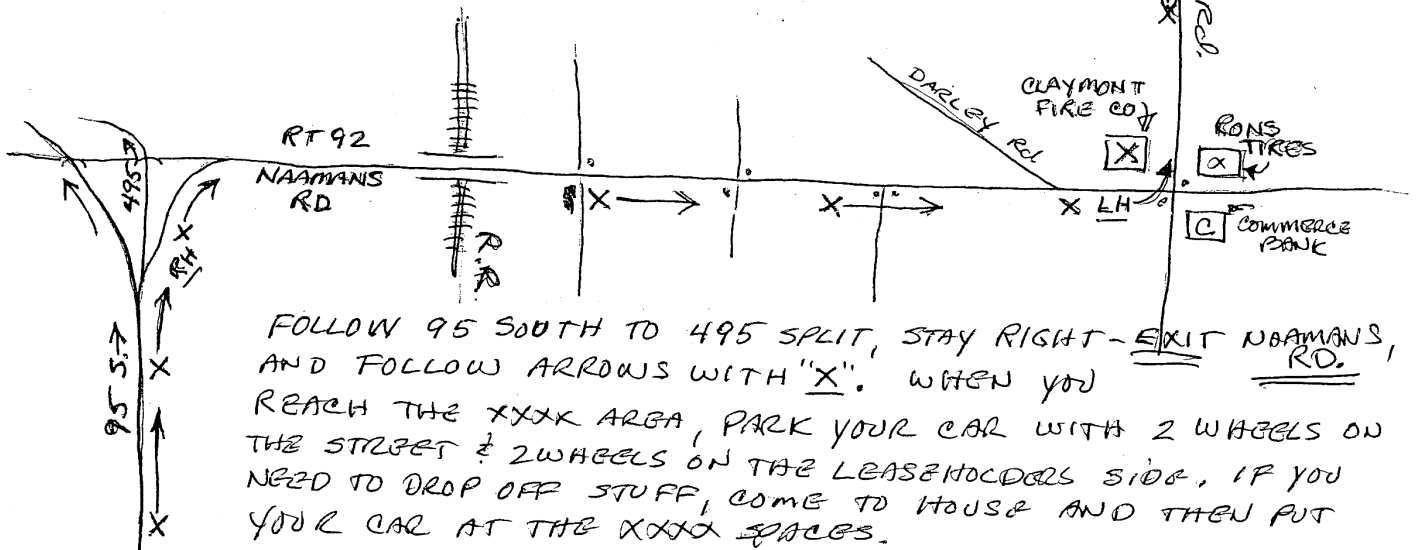 Rd.
DARLEY Rd
CLAYMONT
FIRE CO
RONS
TIRES
RT 92
NAAMANS
RD
495
X
α
X
X
X LH
C
COMMERCE
BANK
R.R.
RH X
95 S.
X
X
FOLLOW 95 SOUTH TO 495 SPLIT, STAY RIGHT - EXIT NAAMANS,
RD.
AND FOLLOW ARROWS WITH "X". WHEN YOU
REACH THE XXXX AREA, PARK YOUR CAR WITH 2 WHEELS ON
THE STREET & 2 WHEELS ON THE LEASEHOLDERS SIDE. IF YOU
NEED TO DROP OFF STUFF, COME TO HOUSE AND THEN PUT
YOUR CAR AT THE XXXX SPACES.